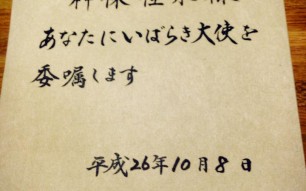 あなたにいばらき大使を
委嘱します
平成26年10月8日